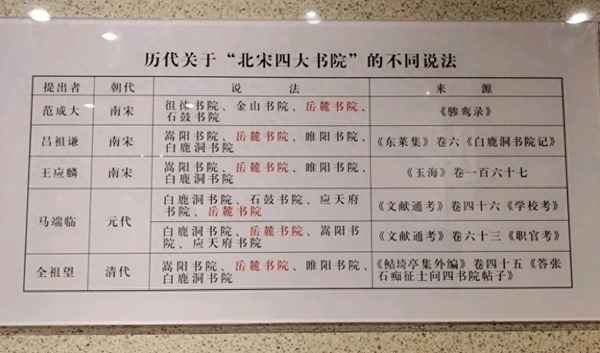 历代关于“北宋四大书院”的不同说法
提出者 朝代 说 法 来 源
范成大 南宋 徂徕书院、金山书院、岳麓书院、
石鼓书院 《骖鸾录》
吕祖谦 南宋 嵩阳书院、岳麓书院、睢阳书院、
白鹿洞书院 《东莱集》卷六《白鹿洞书院记》
王应麟 南宋 嵩阳书院、岳麓书院、睢阳书院、
白鹿洞书院 《玉海》卷一百六十七
马端临 元代 白鹿洞书院、石鼓书院、应天府
书院、岳麓书院 《文献通考》卷四十六《学校考》
白鹿洞书院、岳麓书院、嵩阳书
院、应天府书院 《文献通考》卷六十三《职官考》
全祖望 清代 嵩阳书院、岳麓书院、睢阳书院、
白鹿洞书院 《鲒埼亭集外编》卷四十五《答张
石痴征士问四书院帖子》